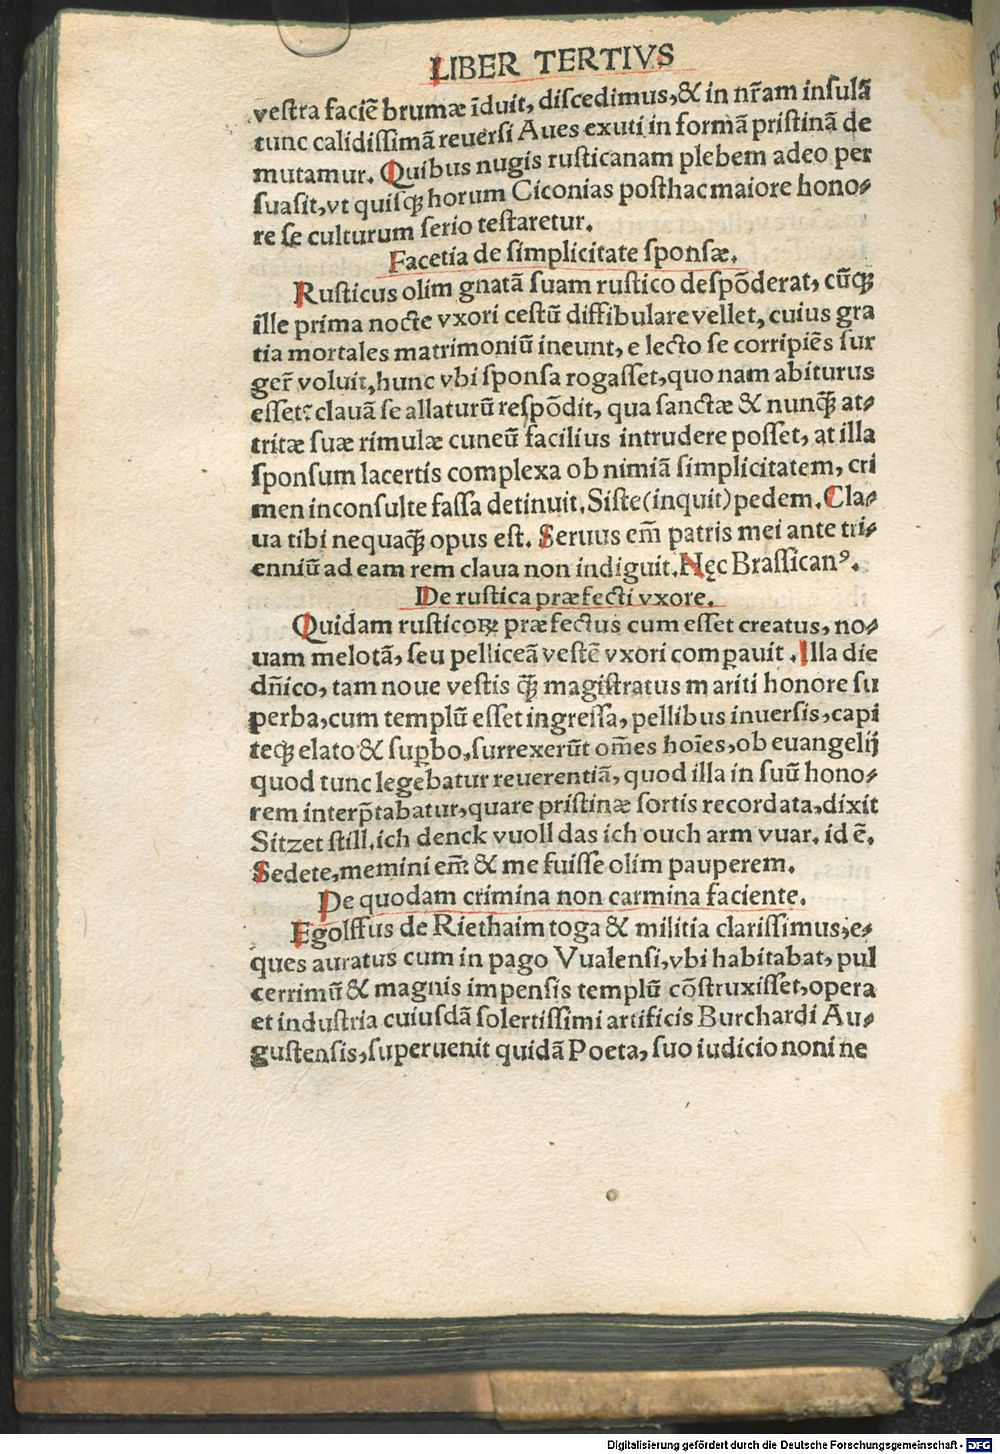 LIBER TERTIVS
vestra faciē brumæ īduit, discedimus, & in nr̄am insulā
tunc calidissimā reuersi Aues exuti in formā pristinā de
mutamur. Quibus nugis rusticanam plebem adeo per
suasit, vt quisqꝫ horum Ciconias posthac maiore hono-
re se culturum serio testaretur.
Facetia de simplicitate sponsæ.
Rusticus olim gnatā suam rustico despōderat, cūqꝫ
ille prima nocte vxori cestū diffibulare vellet, cuius gra
tia mortales matrimoniū ineunt, e lecto se corripiēs sur
ger̄ voluit, hunc vbi sponsa rogasset, quo nam abiturus
esset? clauā se allaturū respōdit, qua sanctæ & nunqꝫ̄ at-
tritæ suæ rimulæ cuneū facilius intrudere posset, at illa
sponsum lacertis complexa ob nimiā simplicitatem, cri
men inconsulte fassa detinuit. Siste (inquit) pedem. Cla-
ua tibi nequaqꝫ̄ opus est. Seruus em̄ patris mei ante tri-
enniū ad eam rem claua non indiguit. Nęc Brassicanꝰ.
De rustica præfecti vxore.
Quidam rusticoꝝ præfectus cum esset creatus, no-
uam melotā, seu pelliceā vestē vxori comꝑauit. Illa die
dn̄ico, tam noue vestis qꝫ̄ magistratus mariti honore su
perba, cum templū esset ingressa, pellibus inuersis, capi
teqꝫ elato & suꝑbo, surrexerūt om̄es hoīes, ob euangelij
quod tunc legebatur reuerentiā, quod illa in suū hono-
rem interp̄tabatur, quare pristinæ sortis recordata, dixit
Sitzet still, ich denck vuoll das ich ouch arm vuar. id ē.
Sedete, memini em̄ & me fuisse olim pauperem.
De quodam crimina non carmina faciente.
Egolffus de Riethaim toga & militia clarissimus, e-
ques auratus cum in pago Vualensi, vbi habitabat, pul
cerrimū & magnis impensis templū cōstruxisset, opera
et industria cuiusdā solertissimi artificis Burchardi Au-
gustensis, superuenit quidā Poeta, suo iudicio non ine
Digitalisierung gefördert durch die Deutsche Forschungsgemeinschaft - DFG